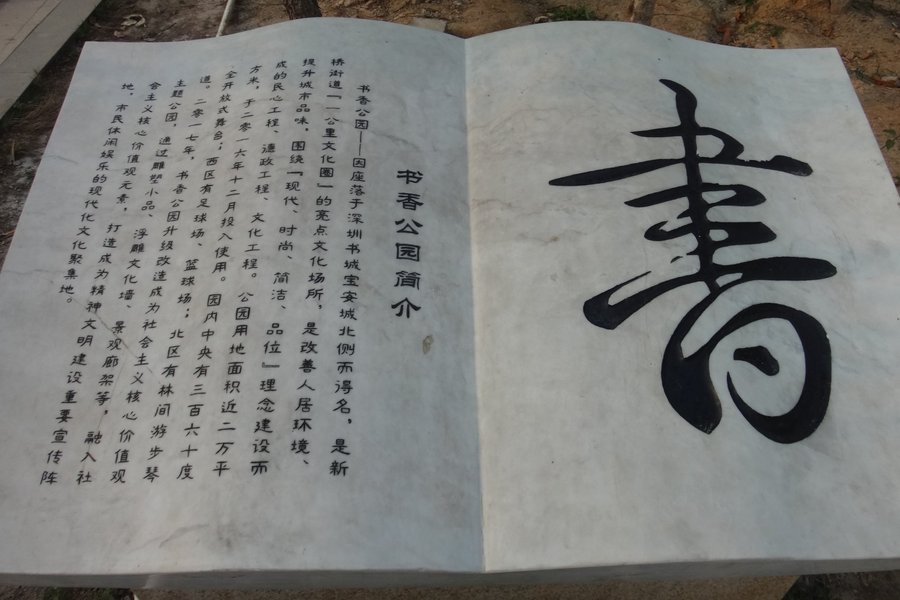 書
书香公园简介
书香公园——因座落于深圳书城宝安城北侧而得名，是新
桥街道「一公里文化圈」的亮点文化场所，是改善人居环境、
提升城市品味，围绕『现代、时尚、简洁、品位』理念建设而
成的民心工程、德政工程、文化工程。公园用地面积近二万平
方米，于二零一六年十二月投入使用。园内中央有三百六十度
全开放式舞台；西区有足球场、篮球场；北区有林间游步琴
道。二零一七年，书香公园升级改造成为社会主义核心价值观
主题公园，通过雕塑小品、浮雕文化墙、景观廊架等，融入社
会主义核心价值观元素，打造成为精神文明建设重要宣传阵
地，市民休闲娱乐的现代化文化聚集地。